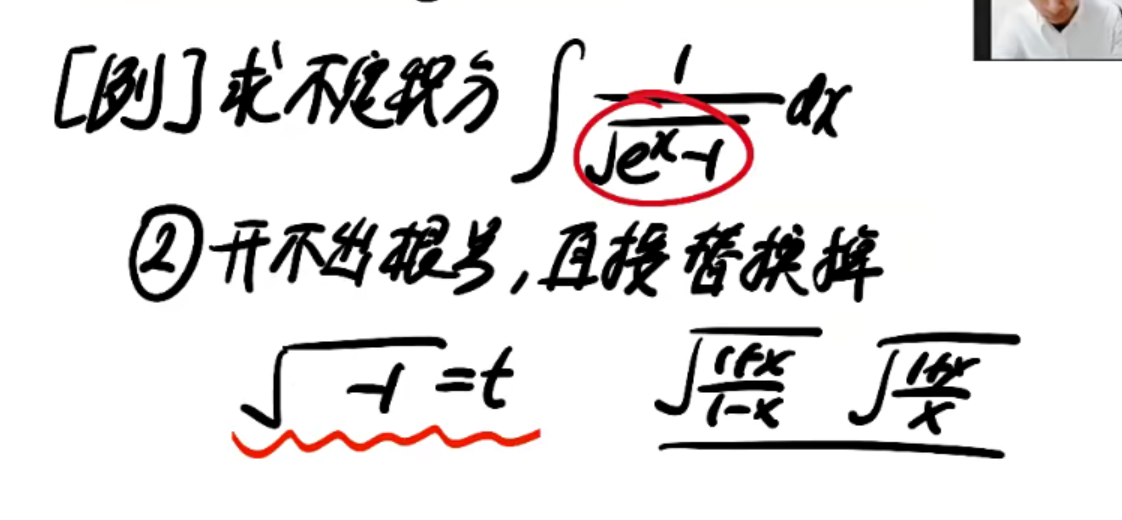 [例] 求不定积分 ∫ 1/√(eˣ-1) dx
② 开不出根号,直接替换掉
√( -1) = t √((1+x)/(1-x)) √((1+x)/x)